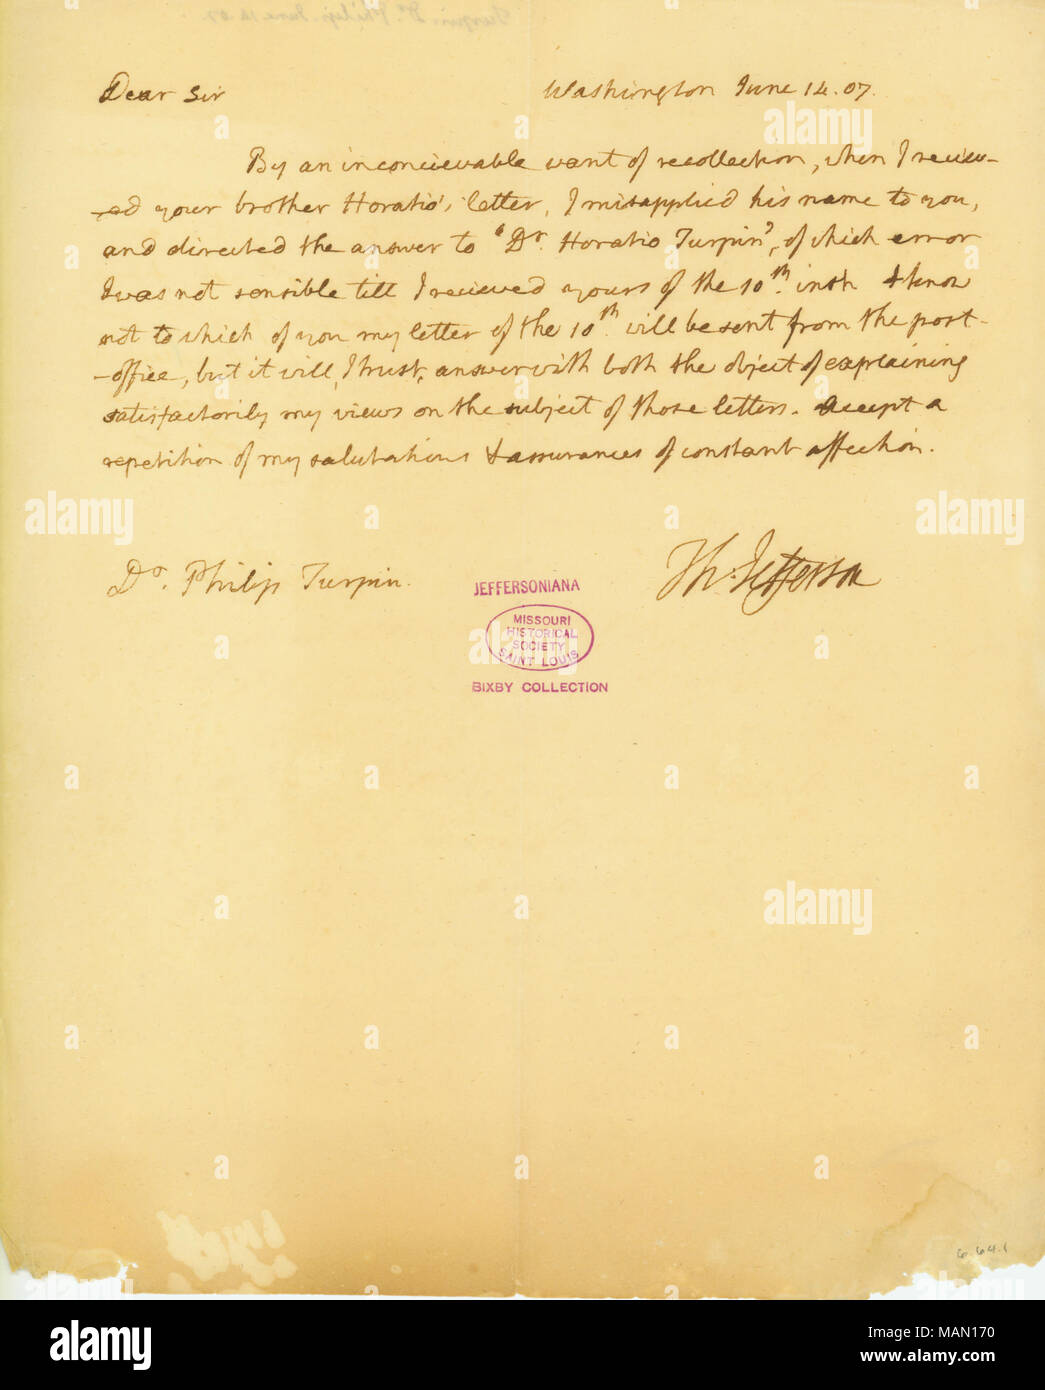 Dear Sir Washington June 14. 07.
By an inconcievable want of recollection, when I reciev-
-ed your brother Horatio's letter, I misapplied his name to you,
and directed the answer to "Dr. Horatio Turpin", of which error
I was not sensible till I recieved yours of the 10th. inst. I know
not to which of you my letter of the 10th. will be sent from the post-
-office, but it will, I trust, answer with both the object of explaining
satisfactorily my views on the subject of those letters. Accept a
repetition of my salutations & assurances of constant affection.
Th: Jefferson
Dr. Philip Turpin.
JEFFERSONIANA
MISSOURI
HISTORICAL
SOCIETY
SAINT LOUIS
BIXBY COLLECTION
6.64.1
alamy
alamy
alamy
alamy
alamy
alamy
Image ID: MAN170
www.alamy.com